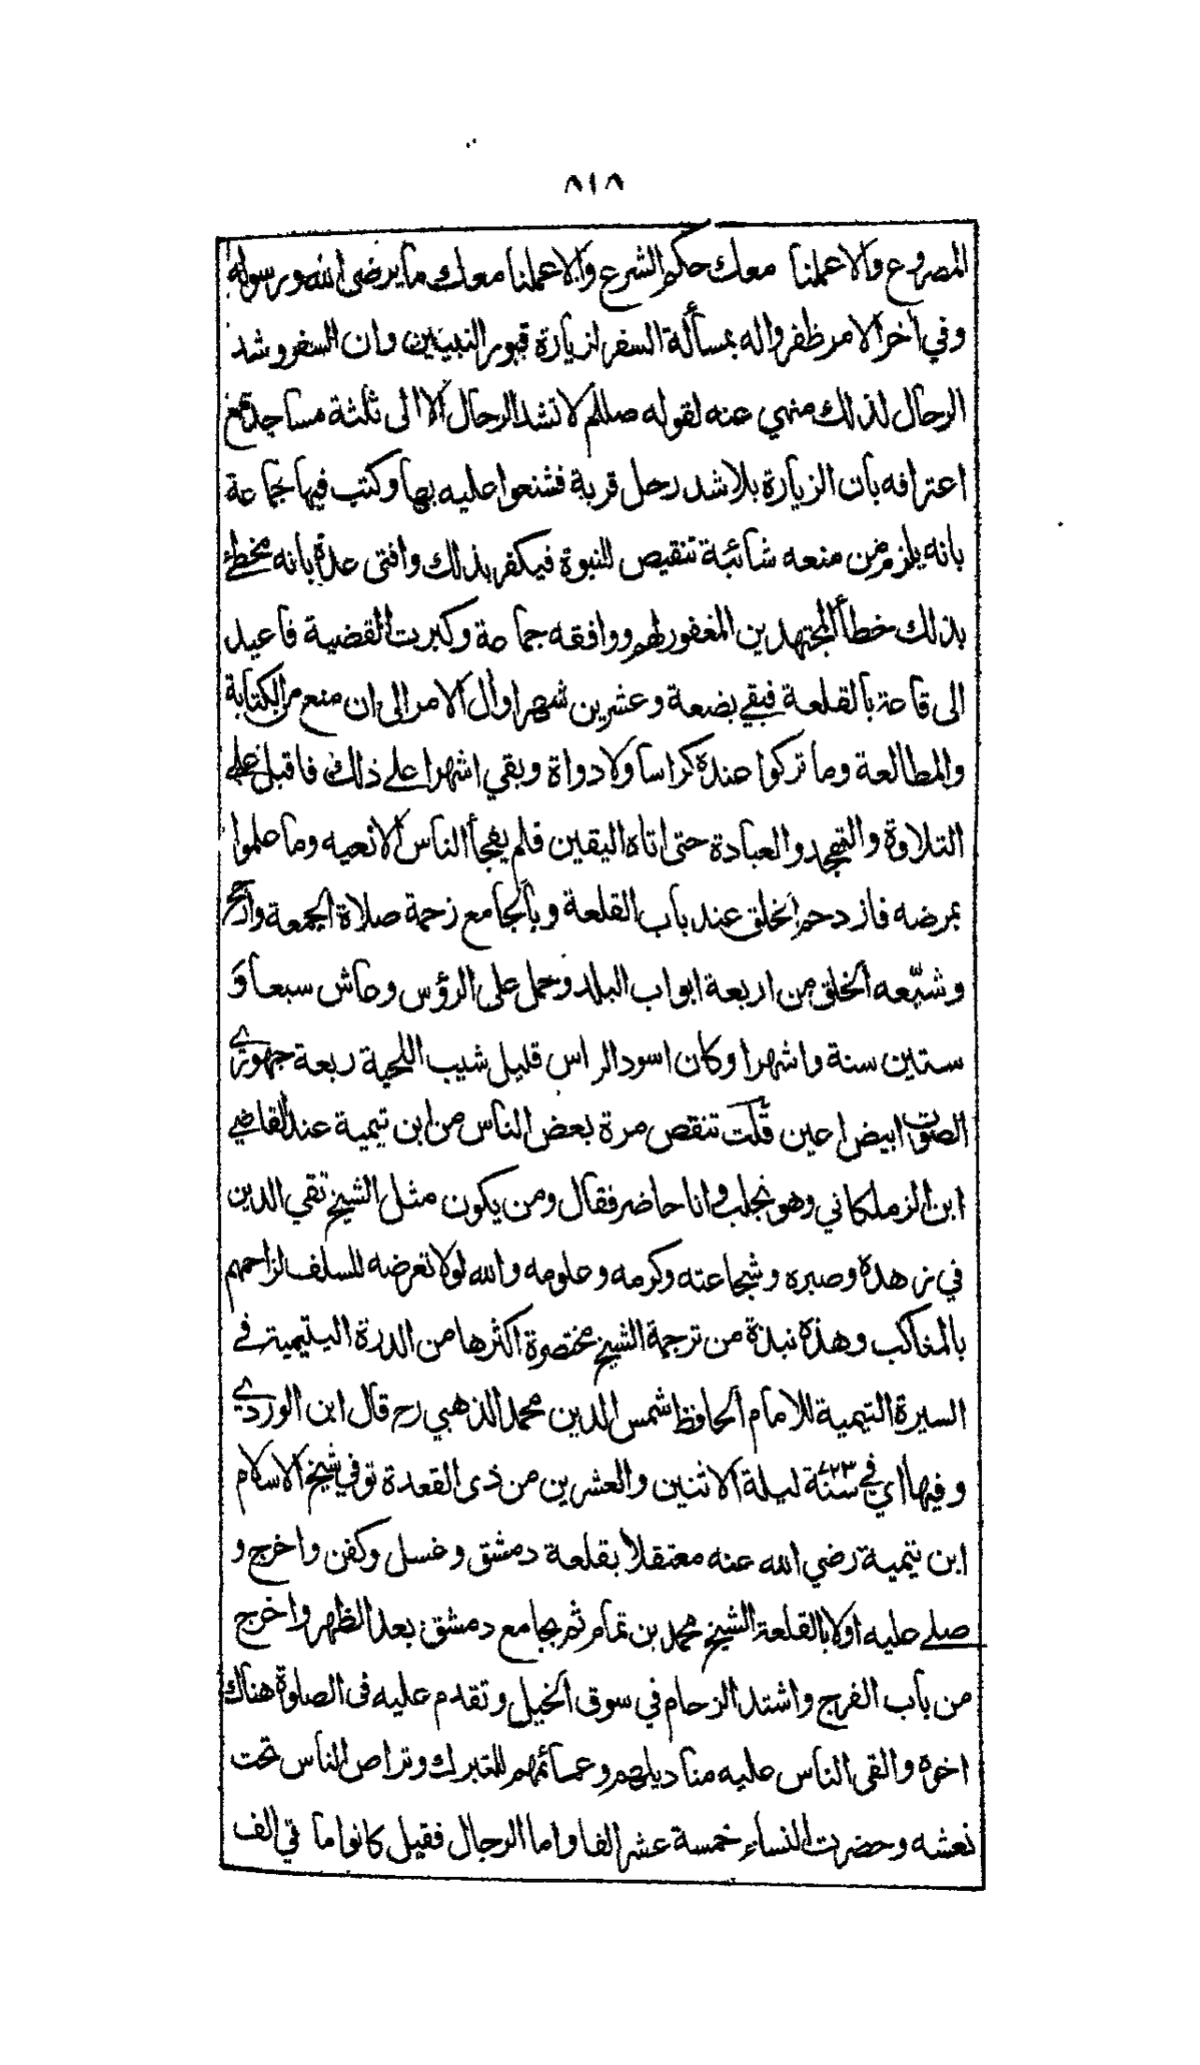 ٨١٨
المصروع والا عملنا معك حكم الشرع والا عملنا معك ما يرضى الله ورسوله
وفي آخر الامر ظفروا له بمسألة السفر لزيارة قبور النبيين وان السفر وشد
الرحال لذلك منهي عنه لقوله صللم لا تشد الرحال الا الى ثلثة مساجد مع
اعترافه بأن الزيارة بلا شد رحل قربة فشنعوا عليه بها وكتب فيها جماعة
بانه يلزم من منعه شائبة تنقيص للنبوة فيكفر بذلك وافتى عدة بانه مخطئ
بذلك خطأ المجتهدين المغفور لهم ووافقه جماعة وكبرت القضية فاعيد
الى قاعة بالقلعة فبقي بضعة وعشرين شهرا وآل الامر الى ان منع من الكتابة
والمطالعة وما تركوا عنده كراسا ولا دواة وبقي اشهرا على ذلك فاقبل على
التلاوة والتهجد والعبادة حتى اتاه اليقين فلم يفجأ الناس الا نعيه وما علموا
بمرضه فازدحم الخلق عند باب القلعة وبالجامع زحمة صلاة الجمعة وارجح
وشيّعه الخلق من اربعة ابواب البلد وحمل على الرؤس وعاش سبعا و
ستين سنة واشهرا وكان اسود الراس قليل شيب اللحية ربعة جهوري
الصوت ابيض اعين قلت تنقص مرة بعض الناس من ابن تيمية عند القاضي
ابن الزملكاني وهو بحلب وانا حاضر فقال ومن يكون مثل الشيخ تقي الدين
في زهده وصبره وشجاعته وكرمه وعلومه والله لولا تعرضه للسلف لزاحمهم
بالمناكب وهذه نبذة من ترجمة الشيخ مختصرة اكثرها من الدرة اليتيمية في
السيرة التيمية للامام الحافظ شمس الدين محمد الذهبي رح قال ابن الوردي
وفيها أي في سنة ٧٢٣ ليلة الاثنين والعشرين من ذى القعدة توفي شيخ الاسلام
ابن تيمية رضي الله عنه معتقلا بقلعة دمشق وغسل وكفن واخرج و
صلى عليه اولا بالقلعة الشيخ محمد بن تمام ثم بجامع دمشق بعد الظهر واخرج
من باب الفرج واشتد الزحام في سوق الخيل وتقدم عليه فى الصلوة هناك
اخوه والقى الناس عليه مناديلهم وعمائمهم للتبرك وتراص الناس تحت
نعشه وحضرت النساء خمسة عشر الفا واما الرجال فقيل كانوا مائتي الف